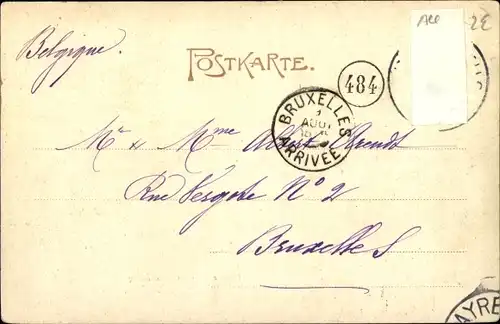 All
2€
Belgique.
POSTKARTE.
484
BRUXELLES
1
AOUT
ARRIVÉE
Mr & Mme Albert Arendt
Rue Vergote No 2
Bruxelles
AYRE